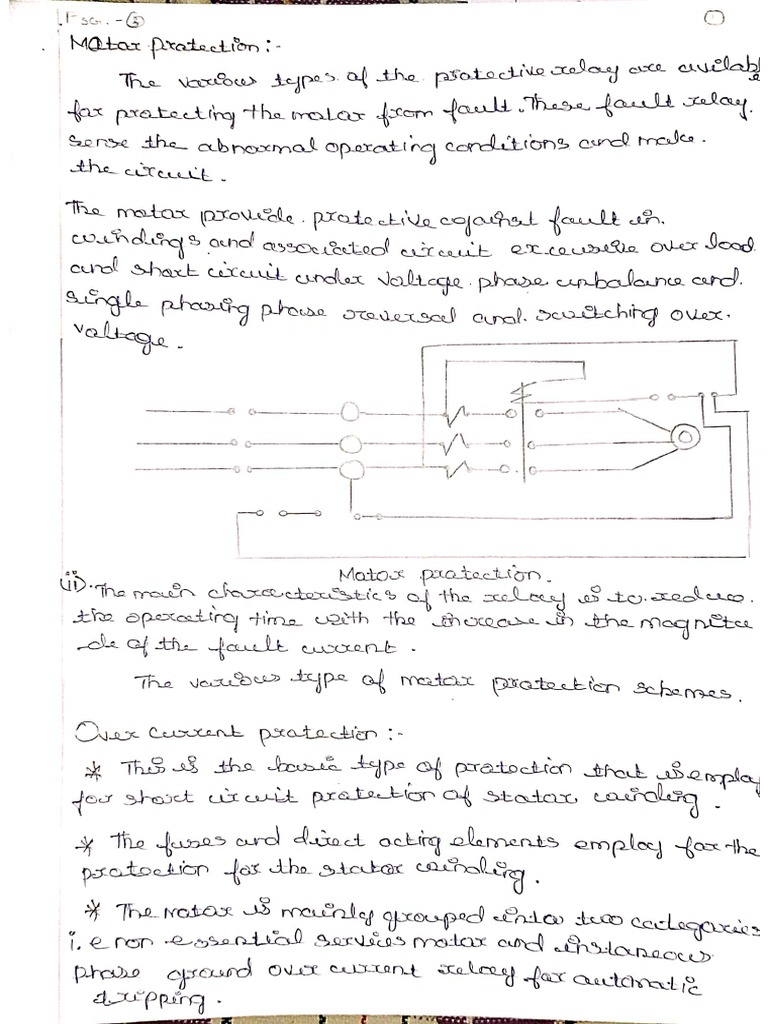 Motor protection :-
The various types of the protective relay are available
for protecting the motor from fault. These fault relay.
sense the abnormal operating conditions and make.
the circuit.
The motor provide. protective against fault in.
windings and associated circuit excessive over load
and short circuit under voltage. phase unbalance and.
single phasing phase reversal and. switching over.
voltage.
Motor protection.
(ii). The main characteristics of the relay is to. reduce.
the operating time with the increase in the magnitu
-de of the fault current.
The various type of motor protection schemes.
Over current protection :-
* This is the basic type of protection that is employ
for short circuit protection of stator winding.
* The fuses and direct acting elements employ for the
protection for the stator winding.
* The motor is mainly grouped into two categories
i.e non essential services motor and instaneous
phase ground over current relay for automatic
tripping.